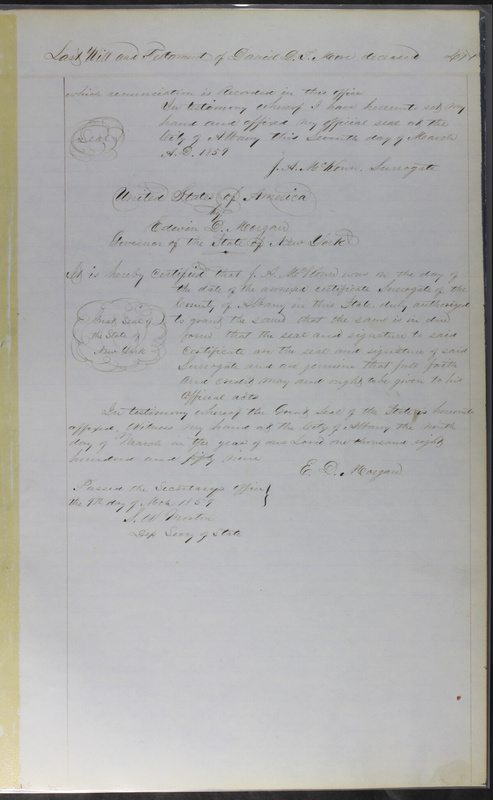 Last Will and Testament of David D. T. More deceased
which renunciation is recorded in this office
In testimony whereof I have hereunto set my
hand and affixed my official seal at the
Seal
City of Albany this Seventh day of March
A.D. 1859
J. A. McKown, Surrogate
United States of America
by
Edwin D. Morgan
Governor of the State of New York
It is hereby Certified that J. A. McKown was on the day of
the date of the annexed certificate Surrogate of the
County of Albany in this State duly authorized
to grant the same that the same is in due
Great Seal of
the State of
New York
form that the seal and signature to said
Certificate are the seal and signature of said
Surrogate and are genuine that full faith
and credit may and ought to be given to his
Official acts
In testimony whereof the Great Seal of the State is hereunto
affixed. Witness my hand at the City of Albany the ninth
day of March in the year of our Lord one thousand eight
hundred and fifty nine
E. D. Morgan
Passed the Secretarys office
the 9th day of Mch 1859
S. W. Morton
Dep Secy of State